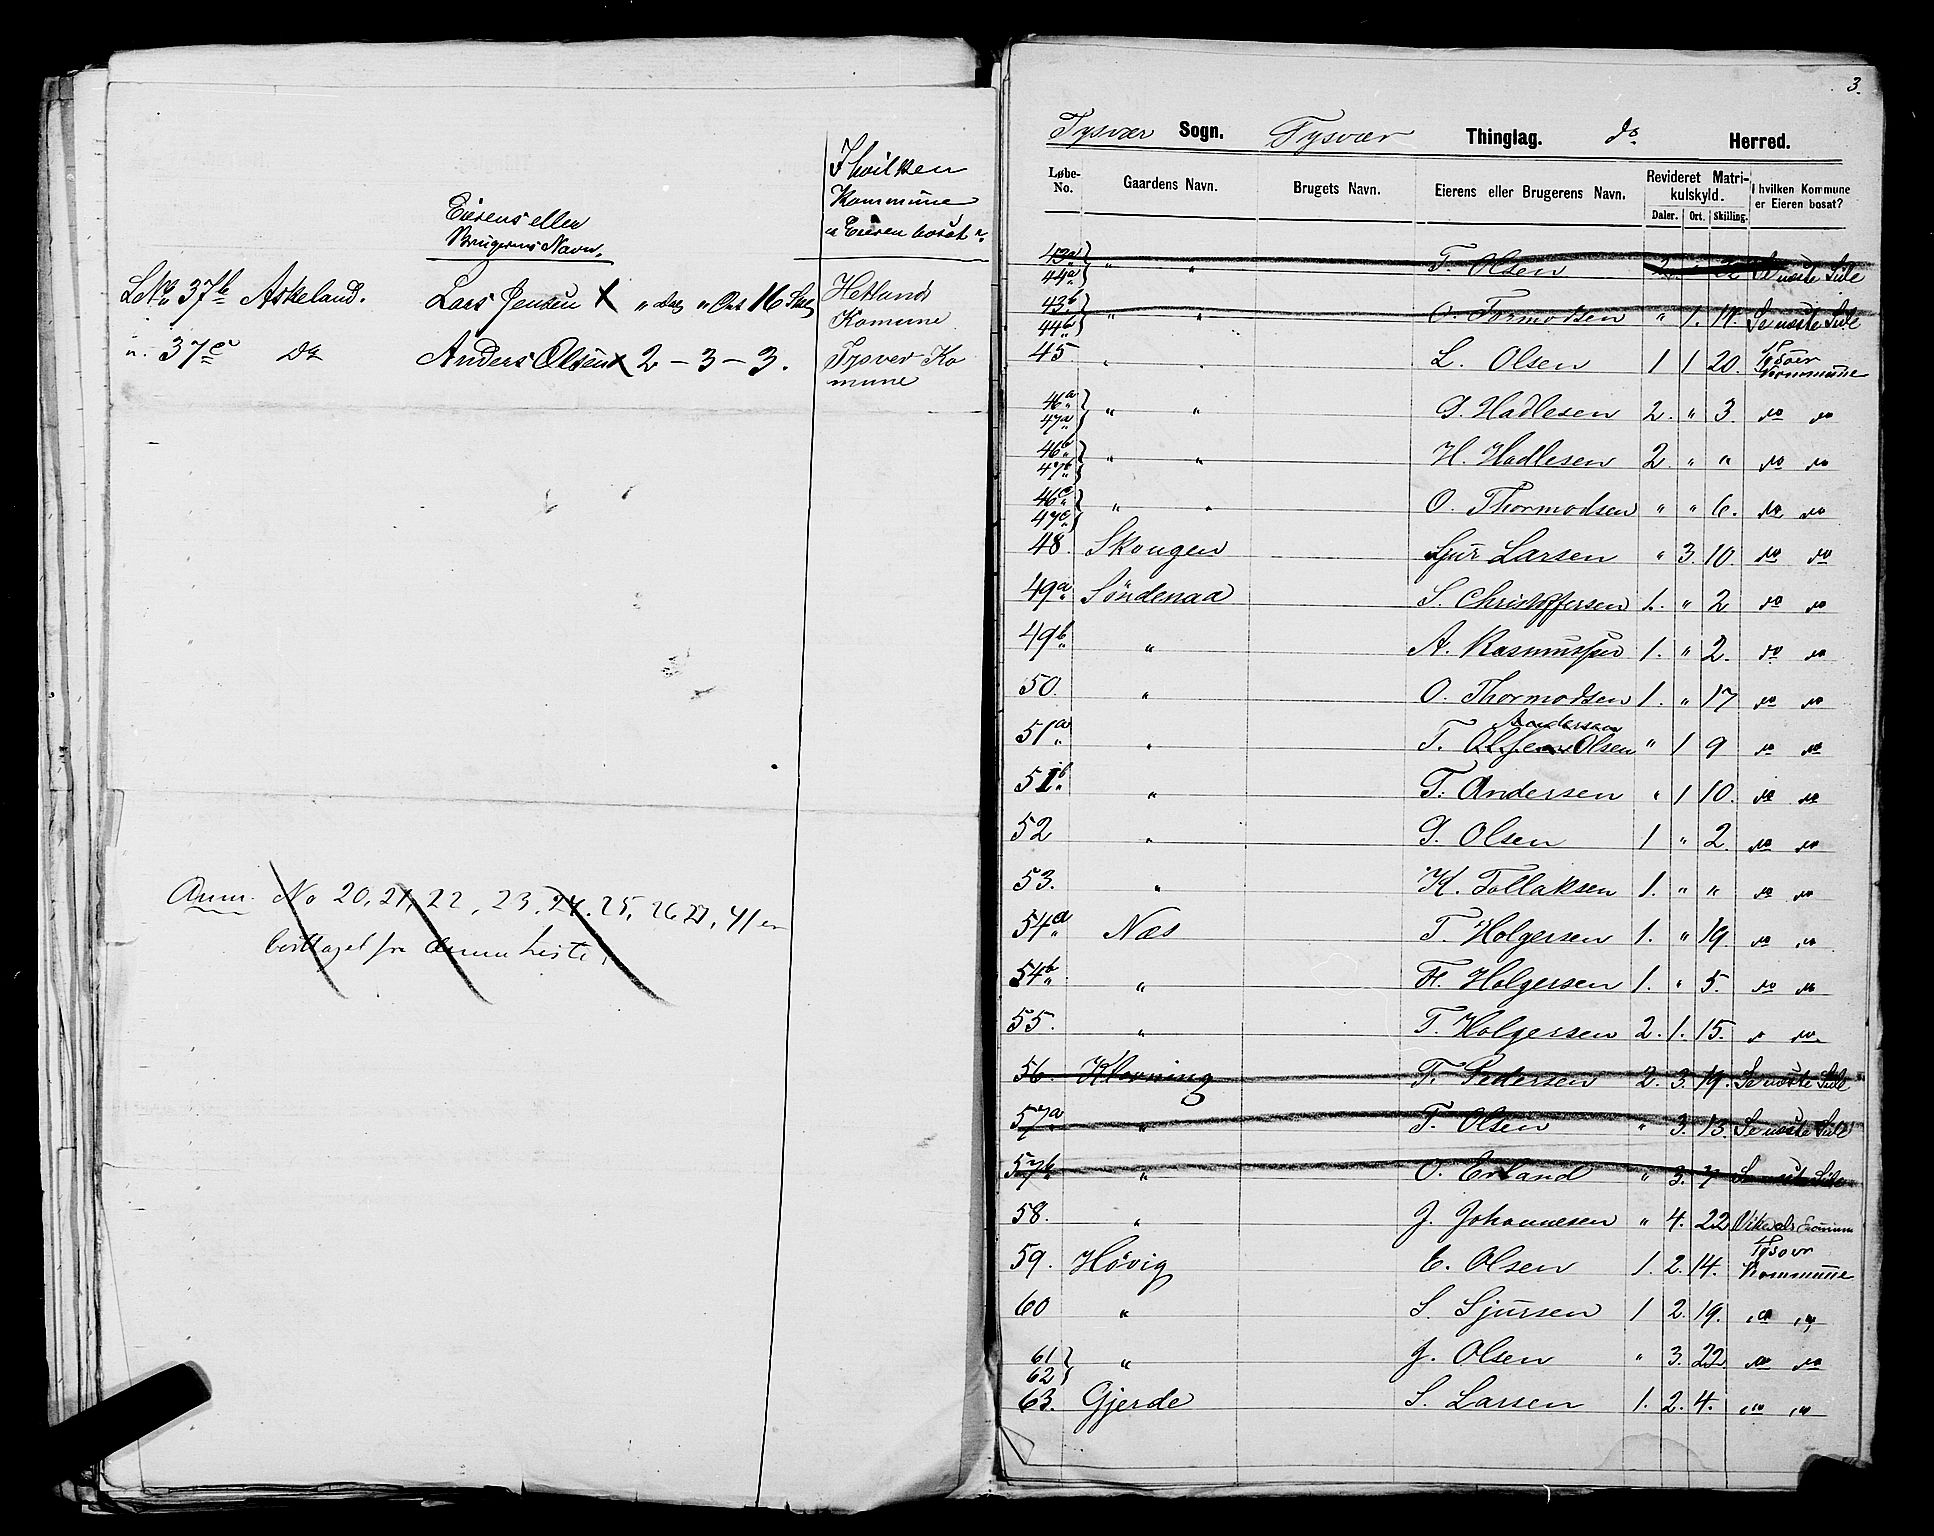 I hvilken
Kommune
er Eieren bosat?
Eierens eller
Brugerens Navn.
LNo 37b Askeland. Lars Jensen X " Dal " Ort 16 Skil Hetland
Komune
" 37c do Anders Olsen X 2 - 3 - 3. Tysver Ko
mune
Anm. No 20, 21, 22, 23, 24, 25, 26, 27, 41 er
borttaget fra denne Liste.
3.
Tysvær Sogn. Tysvær Thinglag. do Herred.
Løbe-No. Gaardens Navn. Brugets Navn. Eierens eller Brugerens Navn. Revideret Matrikulskyld. Daler. Ort. Skilling. I hvilken Kommune er Eieren bosat?
43a 44a " " T. Olsen 2. " 22 Se næste Side
43b 44b " " O. Tormodsen " 1. 11. Se næste Side
45 " " L. Olsen 1 1 20. Tysvær Kommune
46a 47a " " G. Hadlesen 2. " 3. do do
46b 47b " " H. Hadlesen 2 " " do do
46c 47c " " O. Thormodsen " " 6. do do
48. Skougen Sjur Larsen " 3. 10. do do
49a Søndenaa S. Christoffersen 1. " 2 do do
49b " A. Rasmussen 1. " 2. do do
50. " O. Thormodsen 1. " 17 do do
Andersen
51a " T. Olsen Olsen " 1 9 do do
51b " T. Andersen " 1 10. do do
52 " G. Olsen 1 " 2. do do
53. " K. Tollaksen 1. " " do do
54a Næs T. Holgersen 1. " 19. do do
54b " H. Holgersen 1. " 5. do do
55. " T. Holgersen 2. 1. 15. " do
56. Kløvning T. Pedersen 2. 3. 19. Se næste Side
57a " T. Olsen " 3. 13. Se næste Side
57b " O. Erland " 3. 7 Se næste Side
58. " J. Johannesen " 4. 22
59. Høvig E. Olsen 1. 2. 14. Tysvær Kommune
60 " S. Sjursen 1 2. 19. do "
61 62 " J. Olsen " 3. 22 do do
63. Gjerde S. Larsen 1. 2. 4. do do